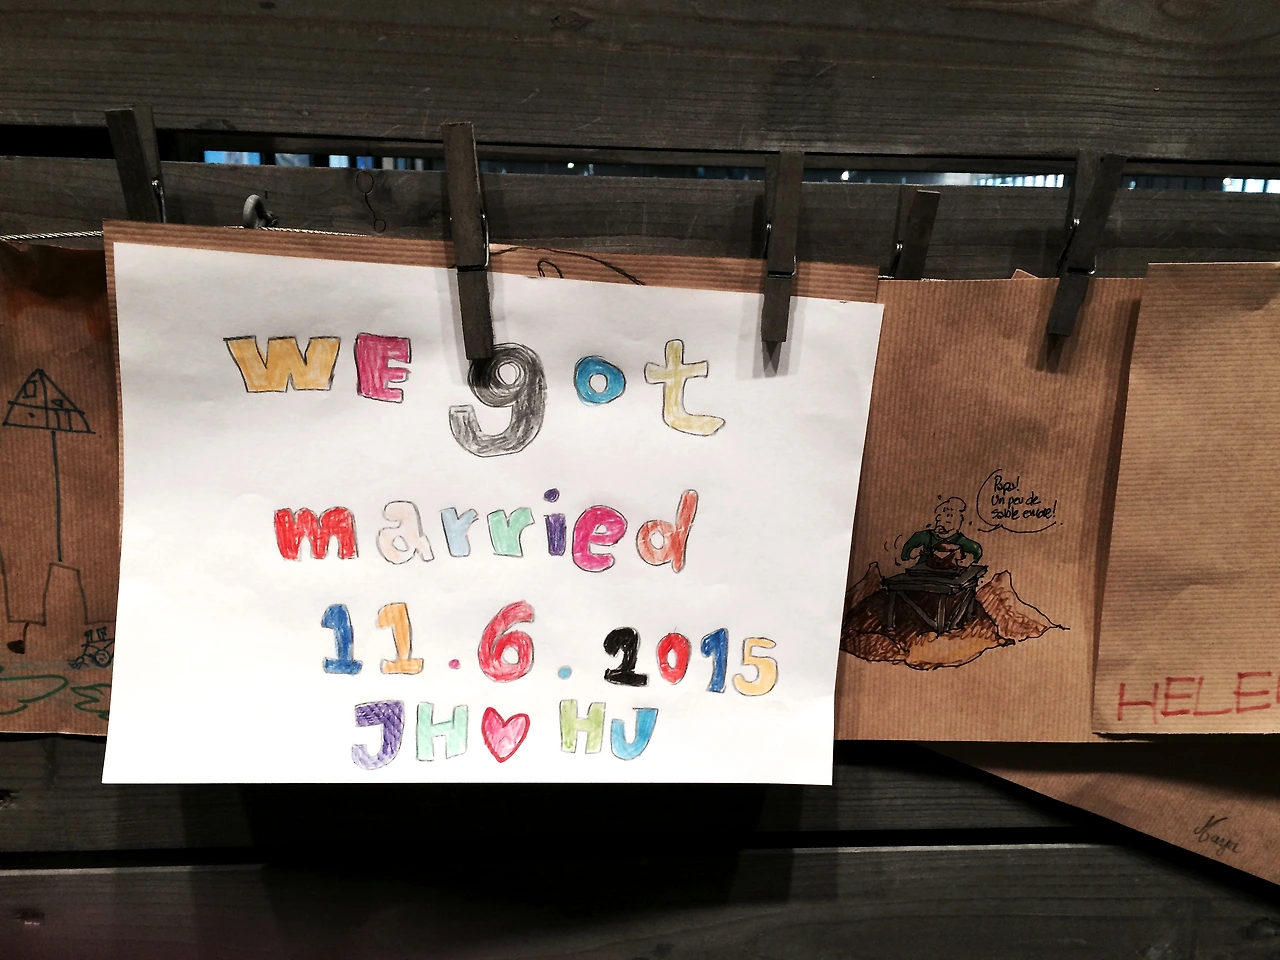 WE got
married
11.6.2015
JH ♥ HJ
Papa!
Un peu de
sable encore!
HELE
Maya